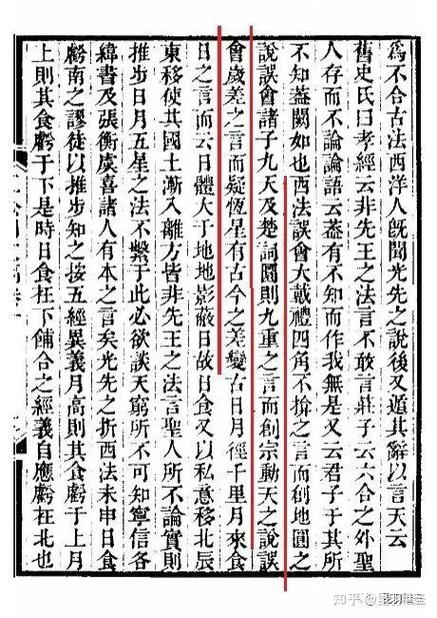 為不合古法西洋人既聞光先之說後又遁其辭以言天云
舊史氏曰孝經云非先王之法言不敢言莊子云六合之外聖
人存而不論論語云蓋有不知而作我無是又云君子于其所
不知蓋闕如也西法誤會大戴禮四角不揜之言而創地圓之
說誤會諸子九天及楚詞圜則九重之言而創宗動天之說誤
會歲差之言而疑恆星有古今之差變古日月徑千里月來食
日之言而云日體大于地地影蔽日故日食又以私意移北辰
東移使其國土漸入離方皆非先王之法言聖人所不論實則
推步日月五星之法不繫于此必欲談天窮所不可知寧信各
緯書及張衡虞喜諸人有本之言矣光先之折西法未申日食
虧南之謬徒以推步知之按五經異義月高則其食虧于上月
上則其食虧于下是時日食在下餔合之經義自應虧在北也
知乎